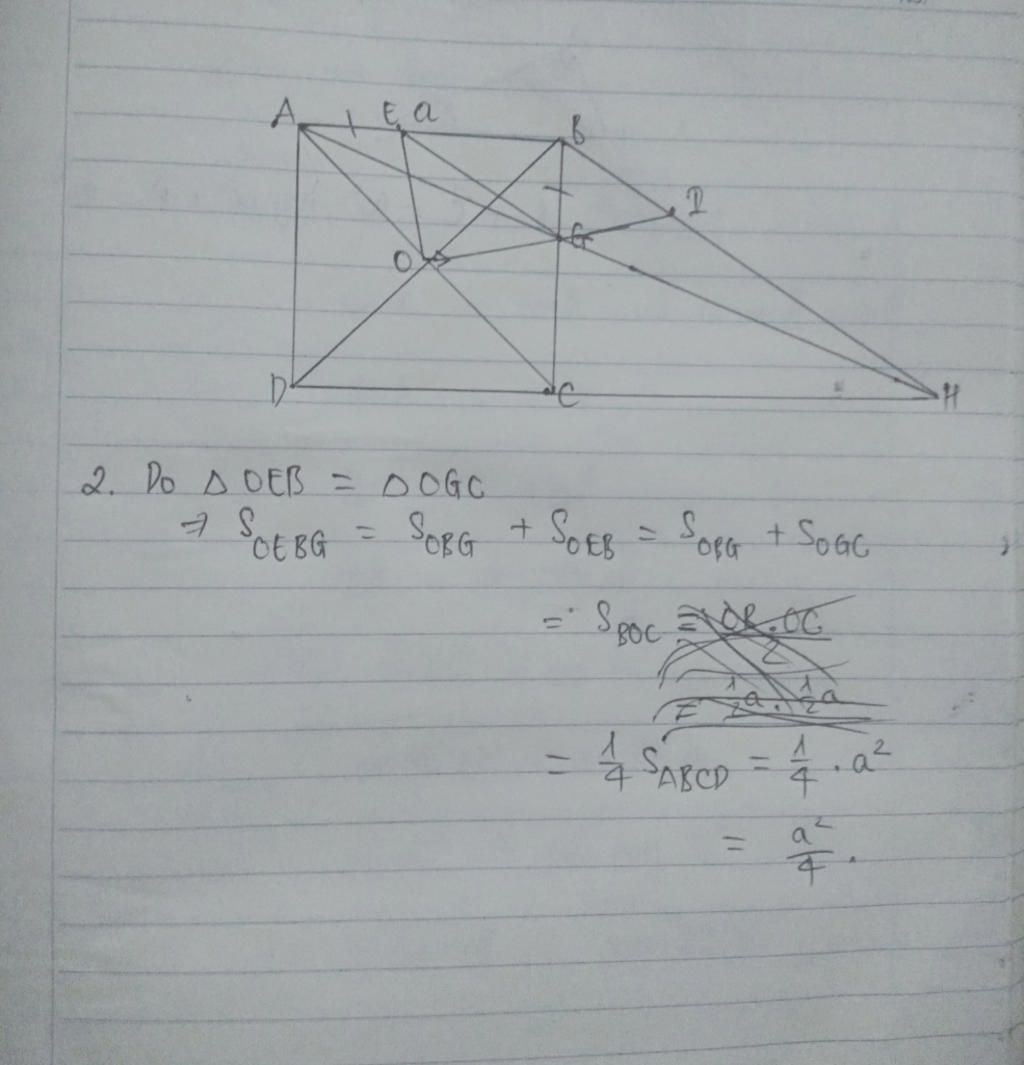 A E a B
I
G
O
D C H
2. Do Δ OEB = Δ OGC
⇒ S_OEBG = S_OBG + S_OEB = S_OBG + S_OGC
= S_BOC = OB.OC / 2
= 1/2 a . 1/2 a
= 1/4 S_ABCD = 1/4 . a²
= a²/4 .